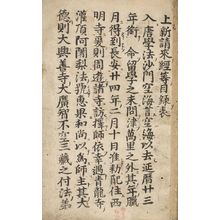 上新請来經等目録表
入唐學法沙門空海言空海以去延曆廿三
年銜命留學之末問津萬里之外其年臘
月得到長安廿四年二月十日准勅配住西
明寺爰則周遊諸寺訪擇師依幸遇青龍寺
灌頂阿闍梨法號惠果和尚以為師主其大
德則大興善寺大廣智不空三藏之付法弟